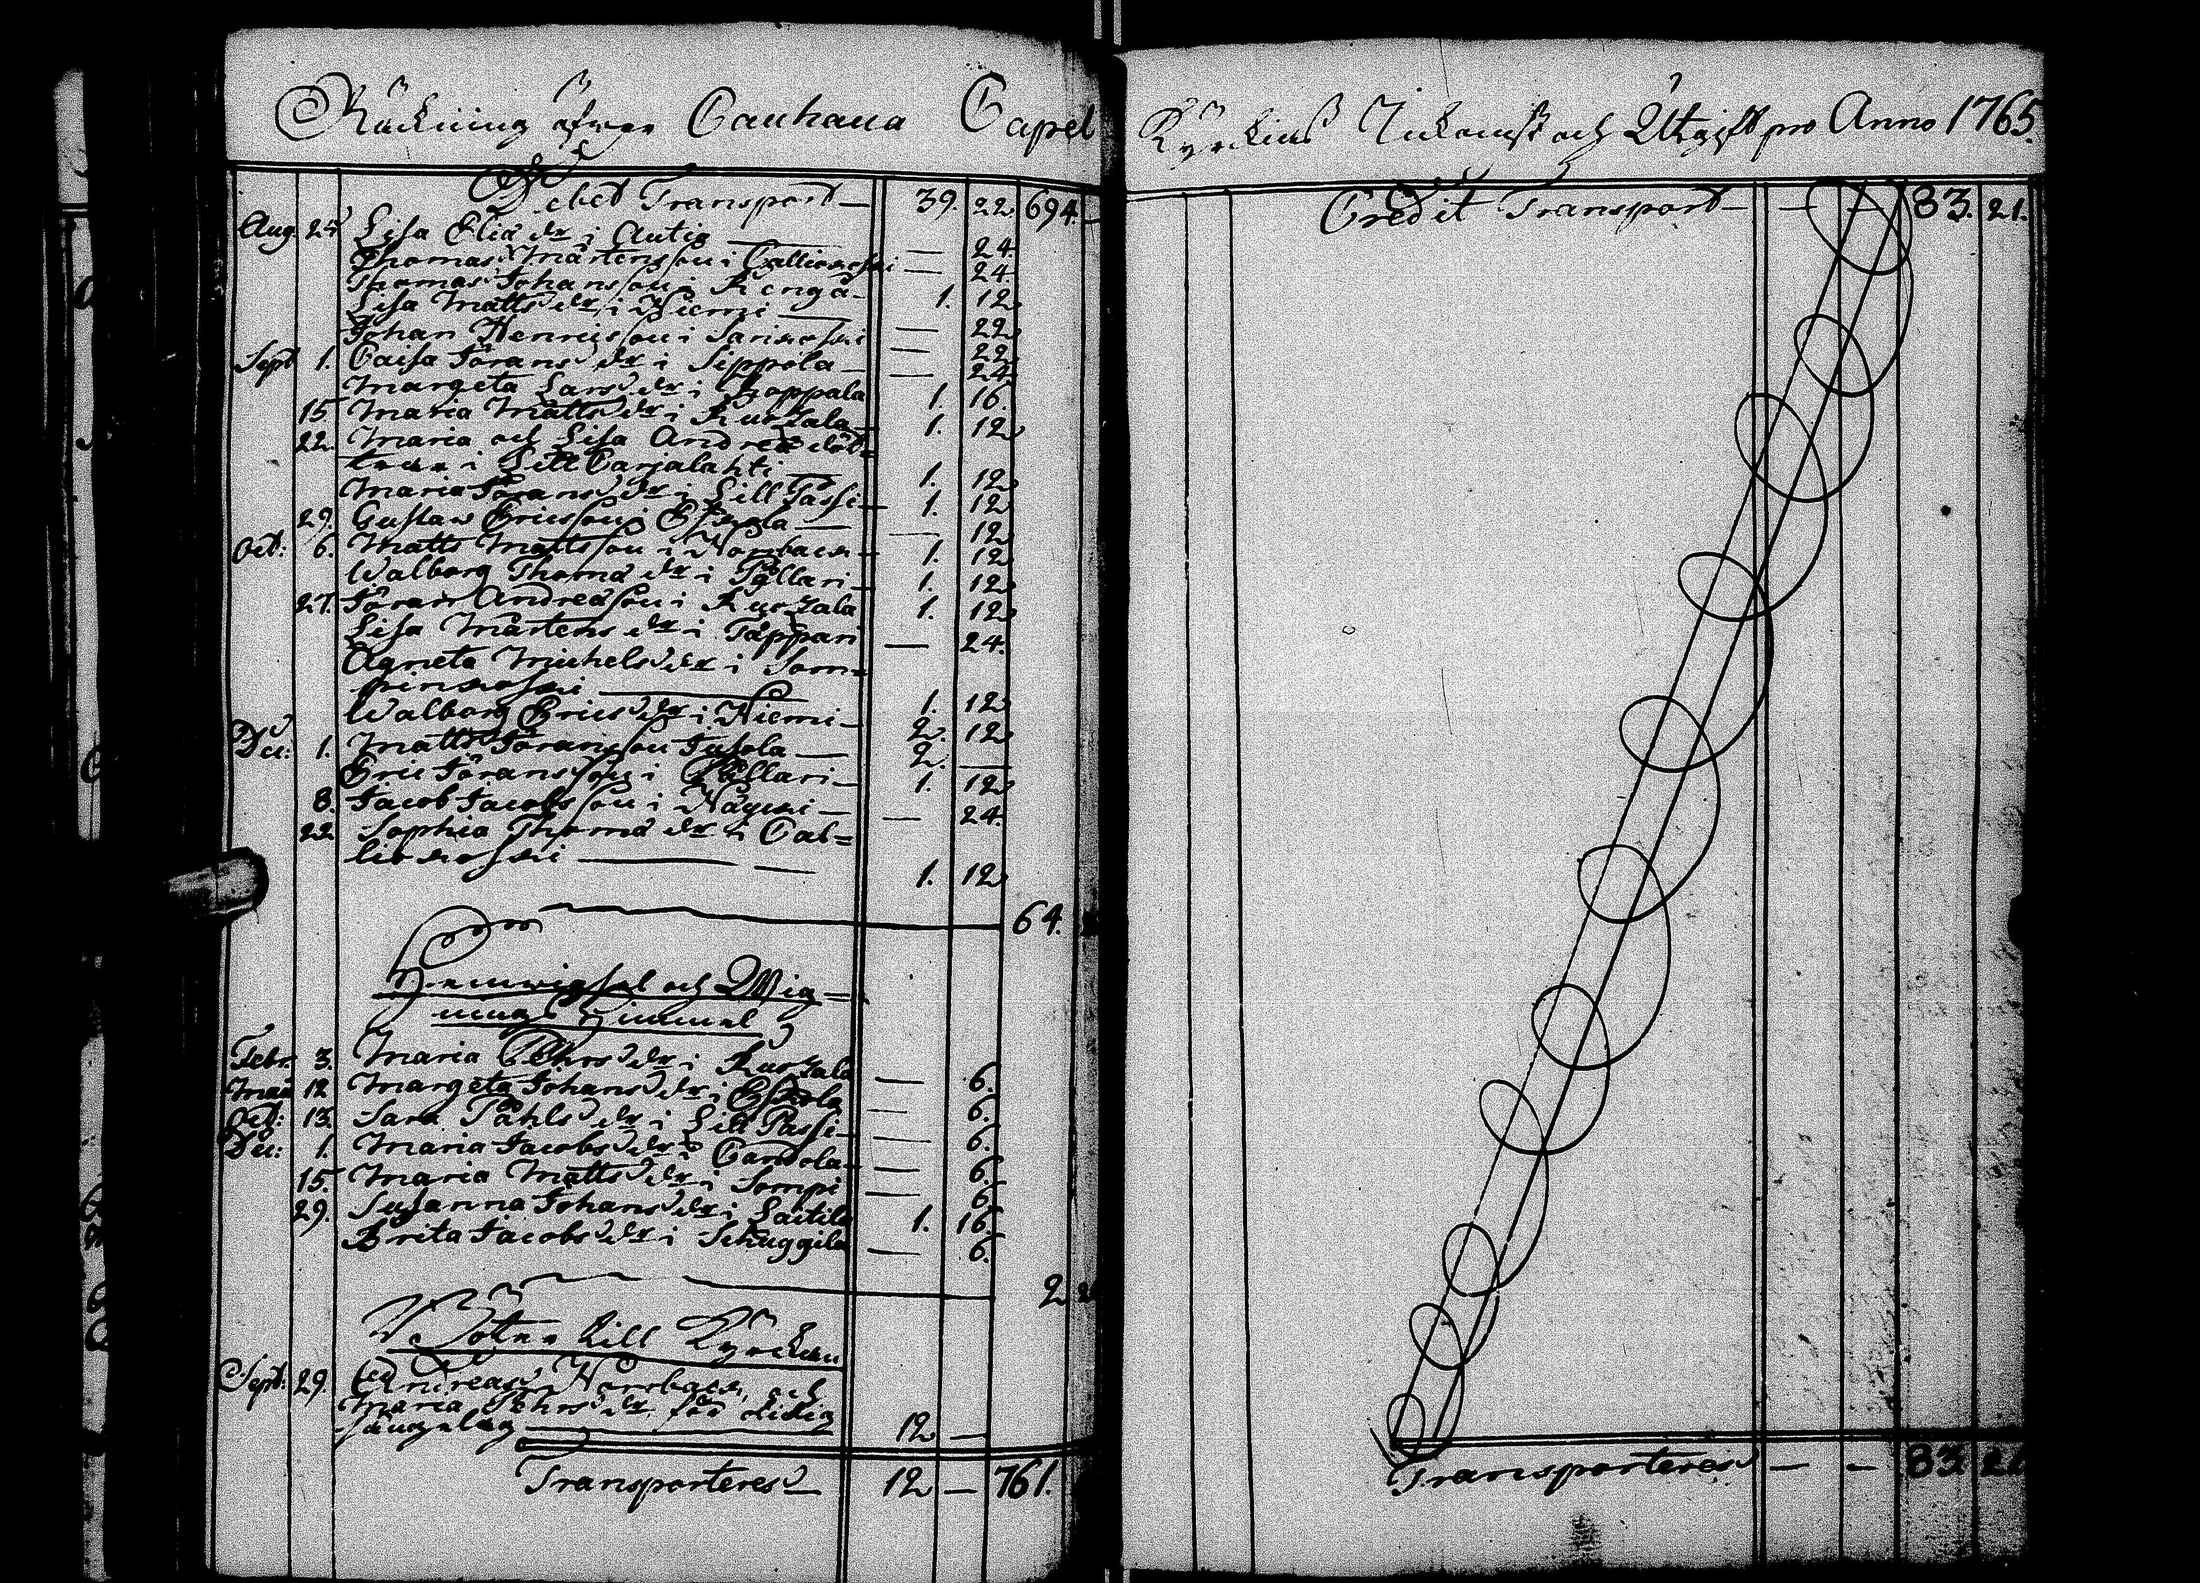 Räckning öfwer Cauhava Capel Kyrckins Inkomst och Utgift pro Anno 1765.
Debet Transport — 39. 22 694. —
Aug. 25 Lisa Eliæ dr i Autio — — 24.
Thomas Mårtensson i Calliokoski — 24.
Thomas Johansson i Rengå — 1. 12
Lisa Matts dr i Niemi — — 22
Johan Henricsson i Sariokoski — 22
Sept 1. Caisa Jörans dr i Sippola — — 24
Margeta Lars dr i Hoppala 1. 16.
15 Maria Matts dr i Ruotzala — 1. 12
22 Maria och Lisa Andreæ döt=
trar i Lill Carjalahti — 1. 12
Maria Jörans dr i Lill Passi — 1. 12
29. Gustaw Ericsson i Eskola — — 12
Oct: 6. Matts Mattsson i Norrback — 1. 12
Walborg Thomæ dr i Pållari — 1. 12
27. Jöran Andreæson i Ruotzala 1. 12
Lisa Mårtens dr i Tåppari — 24.
Agneta Michels dr i Som=
pinkoski — 1. 12
Walborg Erics dr i Niemi — 2. 12
Dec: 1. Matts Jöransson Jusola — 2. —
Eric Jöransson i Pållari — 1. 12
8. Jacob Jacobsson i Näycki — — 24.
22 Sophia Thomæ dr i Cal=
liokoski — 1. 12
64.
Hemwigsel och Wig=
nings Himmel
Febr. 3. Maria Pehrs dr i Ruotzala — 6.
Maii 12 Margeta Johans dr i Eskola — 6.
Oct: 13. Sara Påhls dr i Lill Passi — — 6.
Dec: 1. Maria Jacobs dr i Cantola — — 6.
15. Maria Matts dr i Sompi — 6
29. Susanna Johans dr i Laitila 1. 16.
Brita Jacobs dr i Schuggila — 6.
2
Böter till Kyrckan
Sept: 29. Andreas Norrback och
Maria Pehrs dr för otidig
sängelag — 12 —
Transporteres — 12 — 761.
Credit Transport — — — 83. 21.
Transporteres — — 83 21